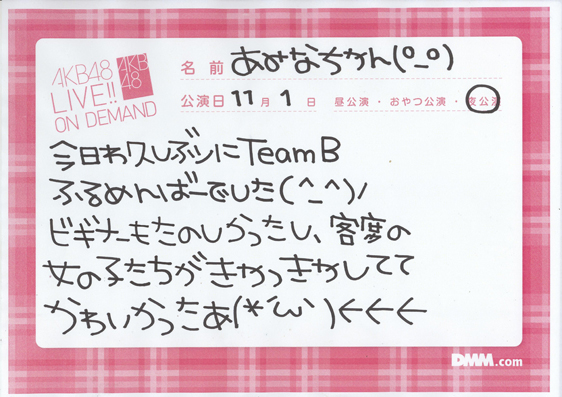 AKB48
LIVE!!
ON DEMAND
AKB
48
名前 あみなちゃん(º_º)
公演日 11月1日 昼公演・おやつ公演・夜公演
今日わ久しぶりにTeamB
ふるめんばーでした(^_^)ノ
ビギナーもたのしかったし、客席の
女の子たちがきゃっきゃしてて
かわいかったあ(*´ω`)←←←
DMM.com